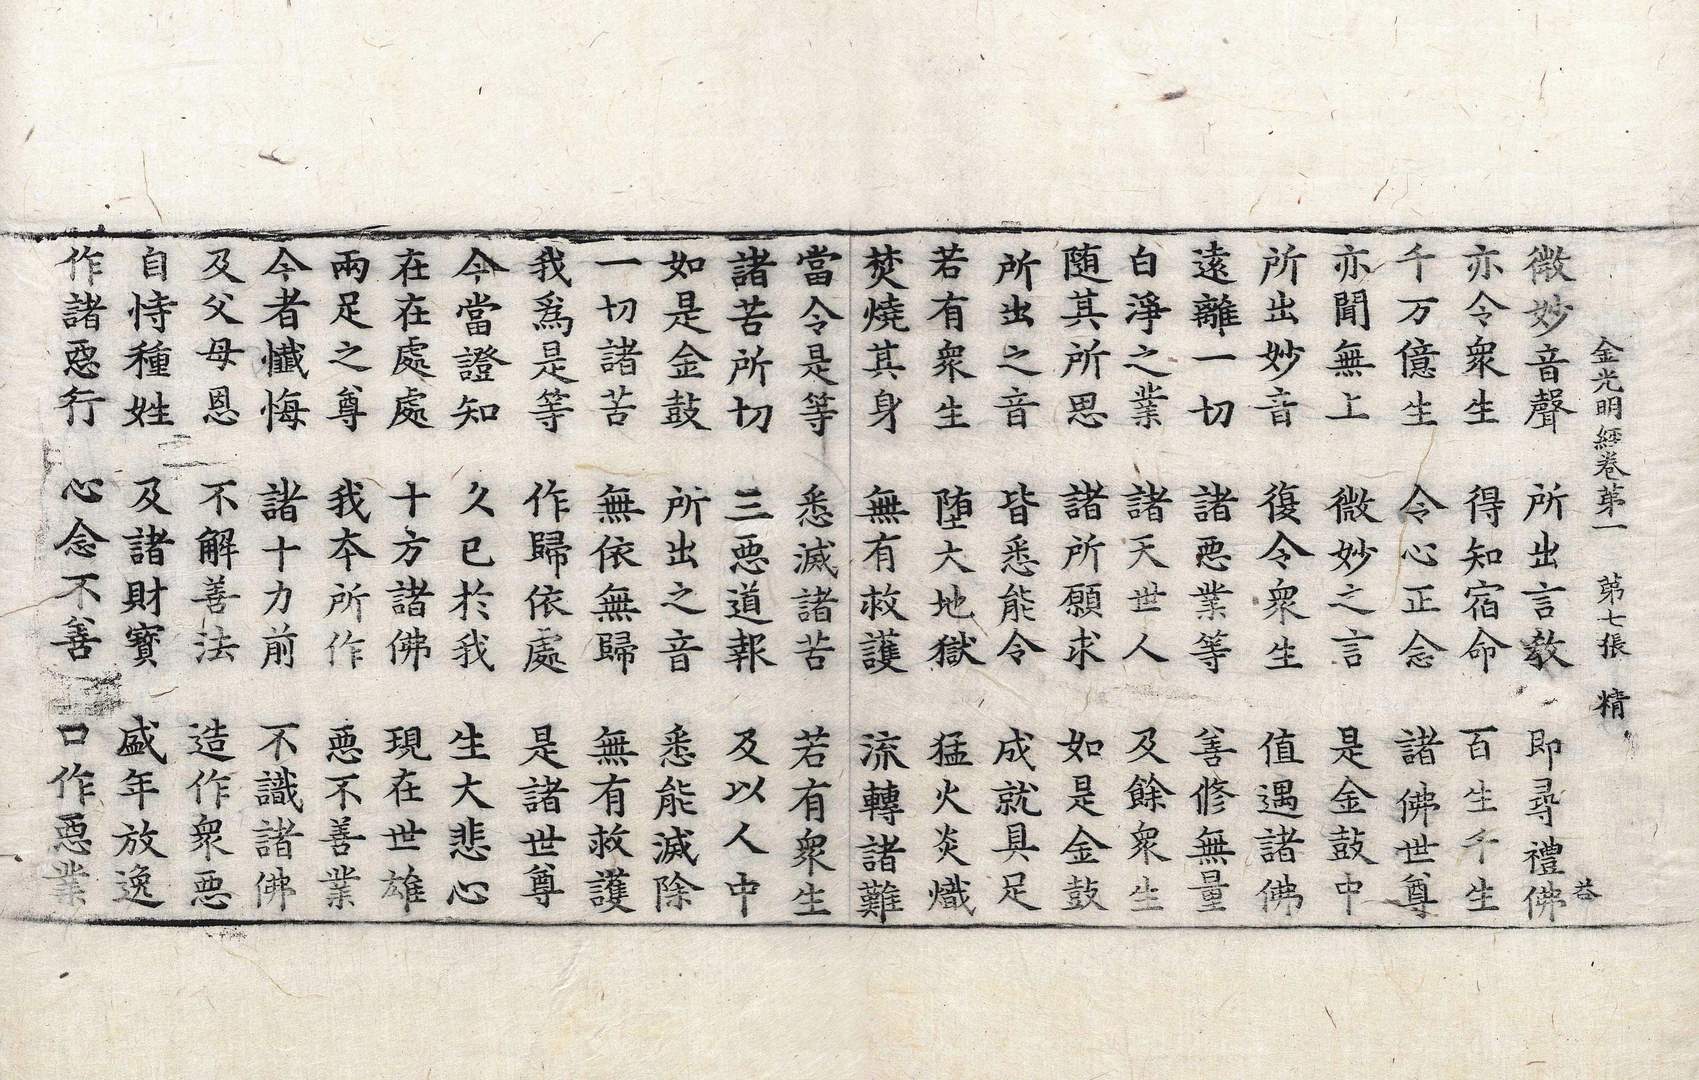 金光明經卷第一 第七張 精
微妙音聲 所出言教 即尋禮佛
亦令衆生 得知宿命 百生千生
千万億生 令心正念 諸佛世尊
亦聞無上 微妙之言 是金鼓中
所出妙音 復令衆生 值遇諸佛
遠離一切 諸惡業等 善修無量
白淨之業 諸天世人 及餘衆生
随其所思 諸所願求 如是金鼓
所出之音 皆悉能令 成就具足
若有衆生 堕大地獄 猛火炎熾
焚燒其身 無有救護 流轉諸難
當令是等 悉滅諸苦 若有衆生
諸苦所切 三惡道報 及以人中
如是金鼓 所出之音 悉能滅除
一切諸苦 無依無歸 無有救護
我爲是等 作歸依處 是諸世尊
今當證知 久已於我 生大悲心
在在處處 十方諸佛 現在世雄
兩足之尊 我本所作 惡不善業
今者懺悔 諸十力前 不識諸佛
及父母恩 不解善法 造作衆惡
自恃種姓 及諸財寳 盛年放逸
作諸惡行 心念不善 口作惡業